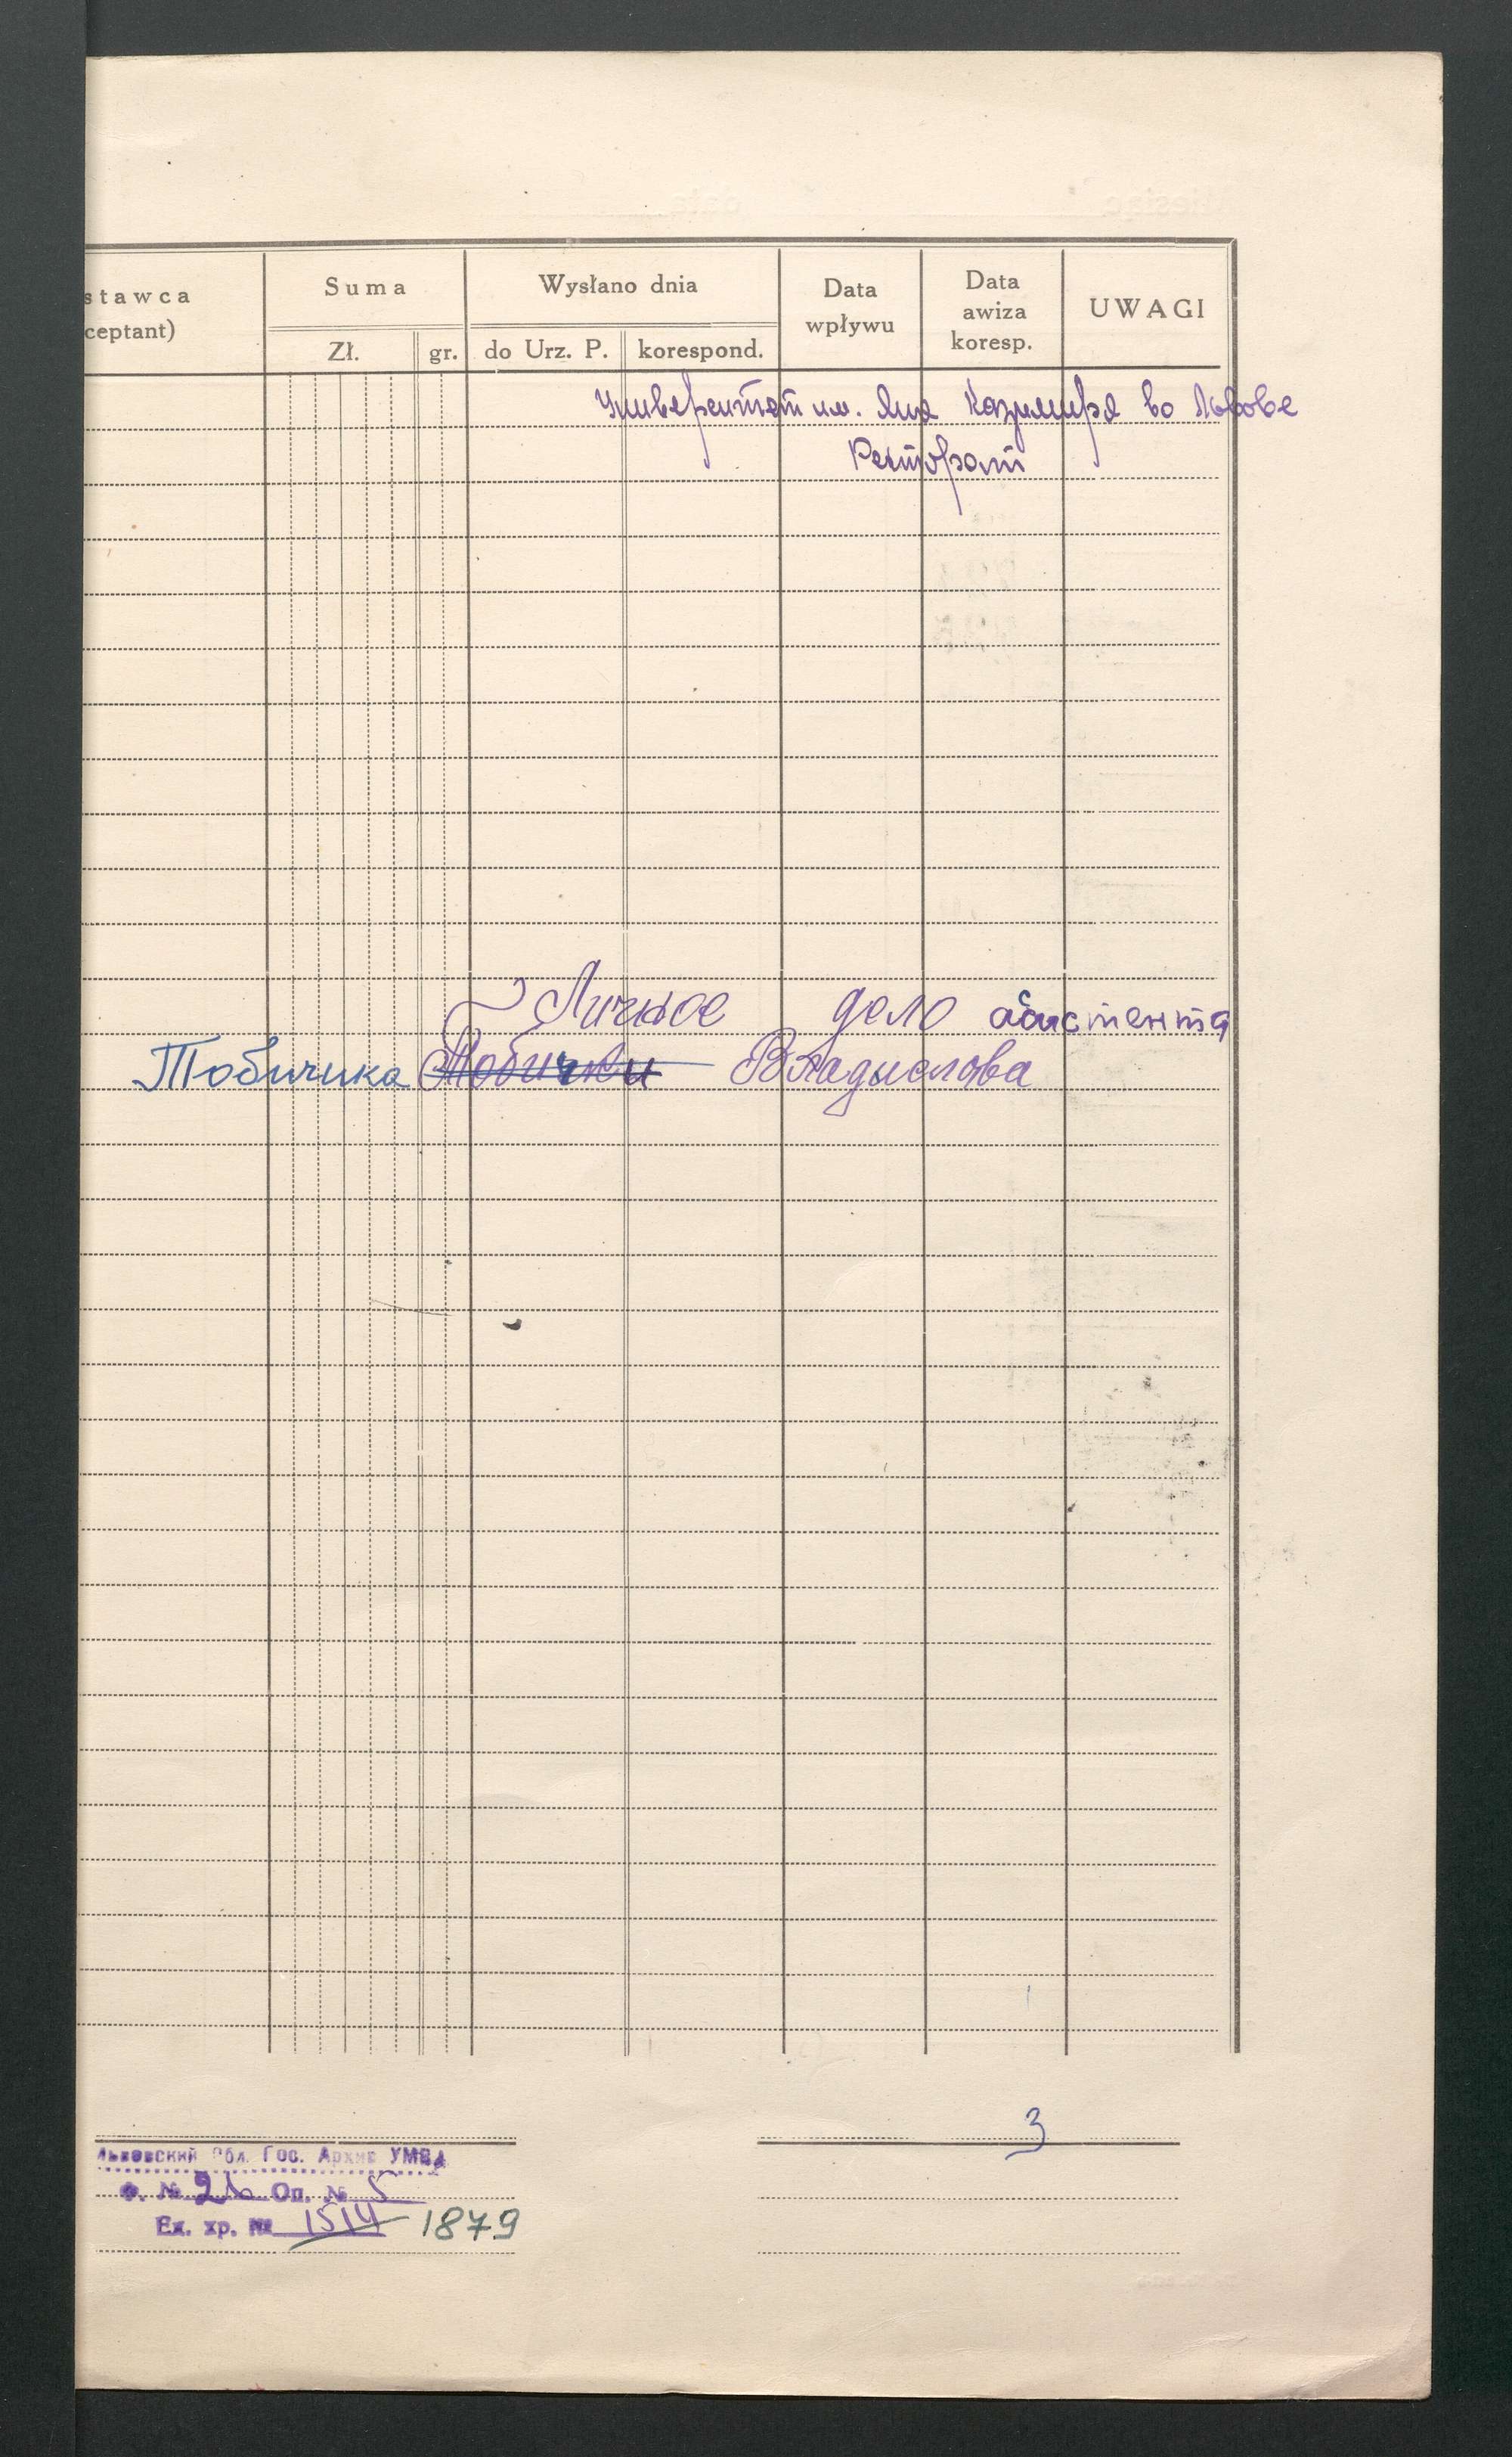 stawca
ceptant)
Suma
Zł. gr.
Wysłano dnia
do Urz. P. korespond.
Data
wpływu
Data
awiza
koresp.
UWAGI
Университет им. Яна Казимира во Львове
Ректорат
Личное дело асистента
Тобичика Владислава
3
Львовский Обл. Гос. Архив УМВД
Ф. № 26 Оп. № 5
Ед. хр. № 1514 1879